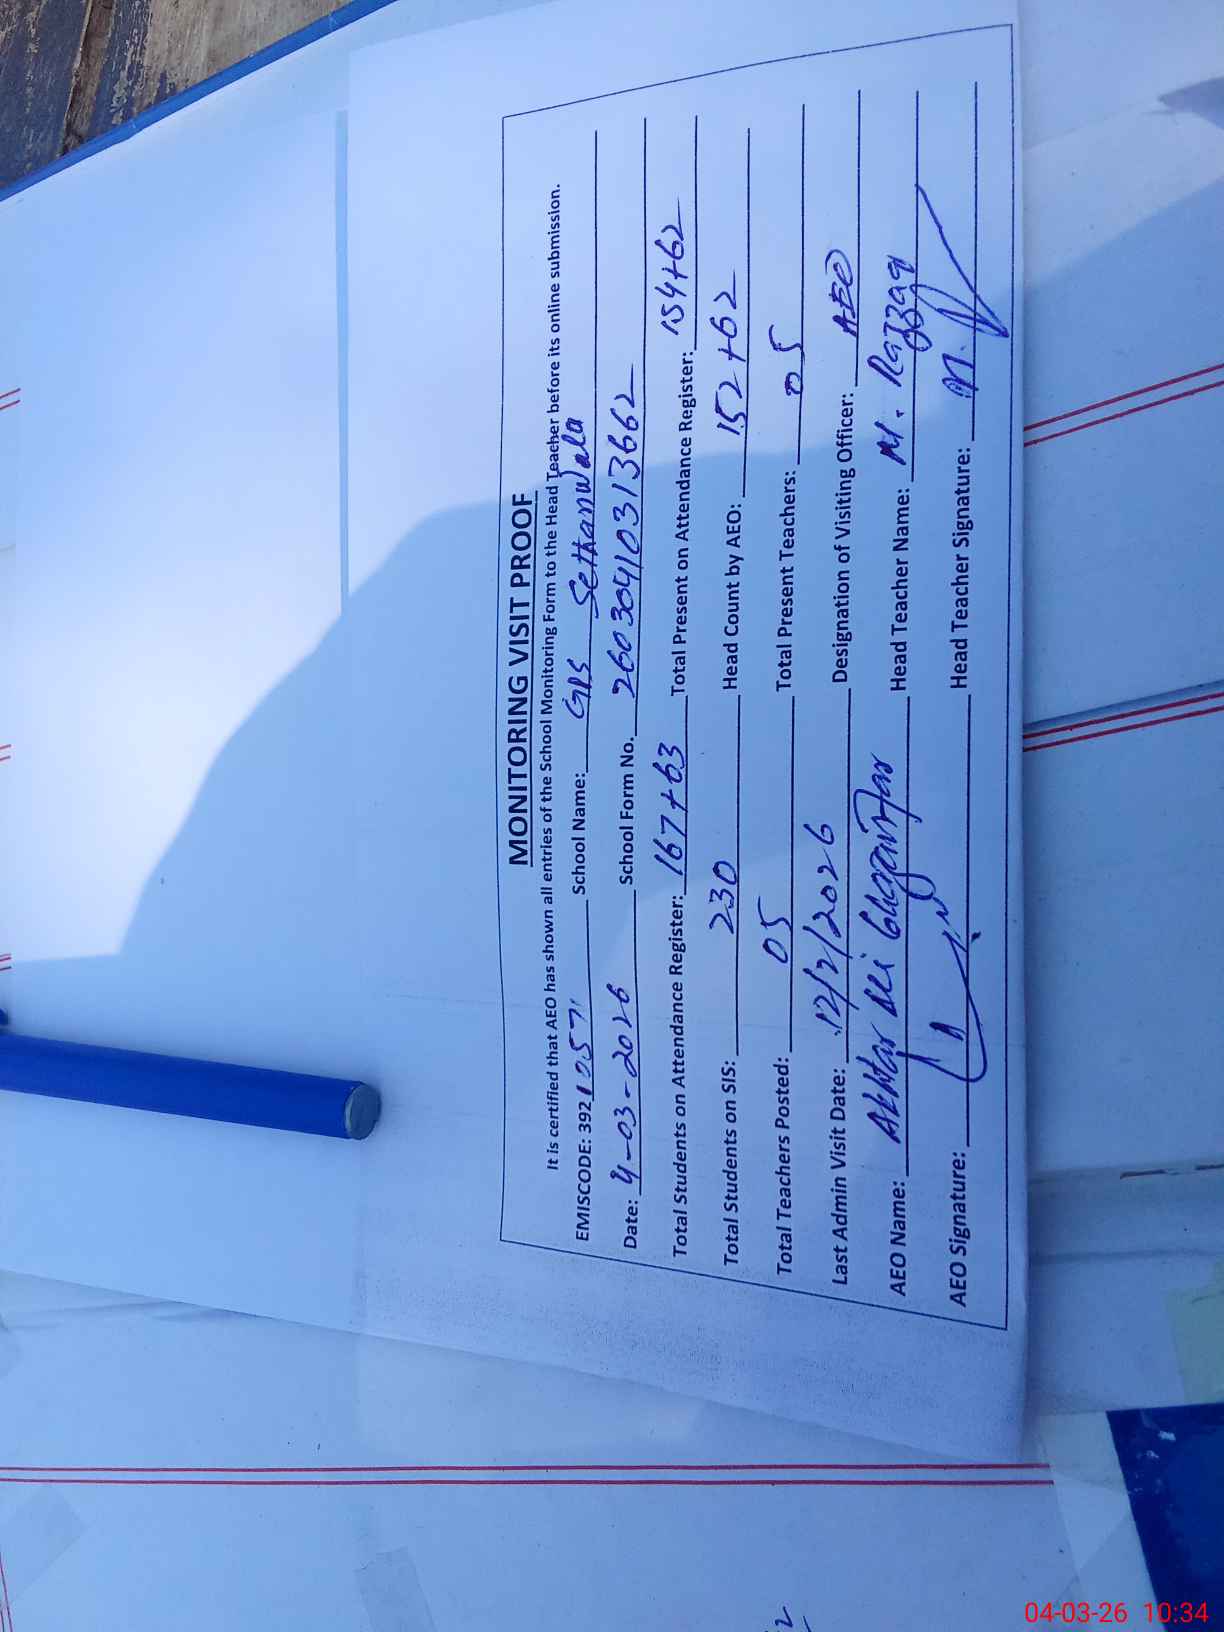 MONITORING VISIT PROOF
It is certified that AEO has shown all entries of the School Monitoring Form to the Head Teacher before its online submission.
EMISCODE: 39210571 School Name: GPS Sethanwala
Date: 4-03-2026 School Form No. 2603041031 3662
Total Students on Attendance Register: 167+63 Total Present on Attendance Register: 154+62
Total Students on SIS: 230 Head Count by AEO: 152+62
Total Teachers Posted: 05 Total Present Teachers: 05
Last Admin Visit Date: 12/2/2026 Designation of Visiting Officer: AEO
AEO Name: Akhtar Ali Head Teacher Name: M. Razzaq
AEO Signature: Head Teacher Signature:
04-03-26 10:34